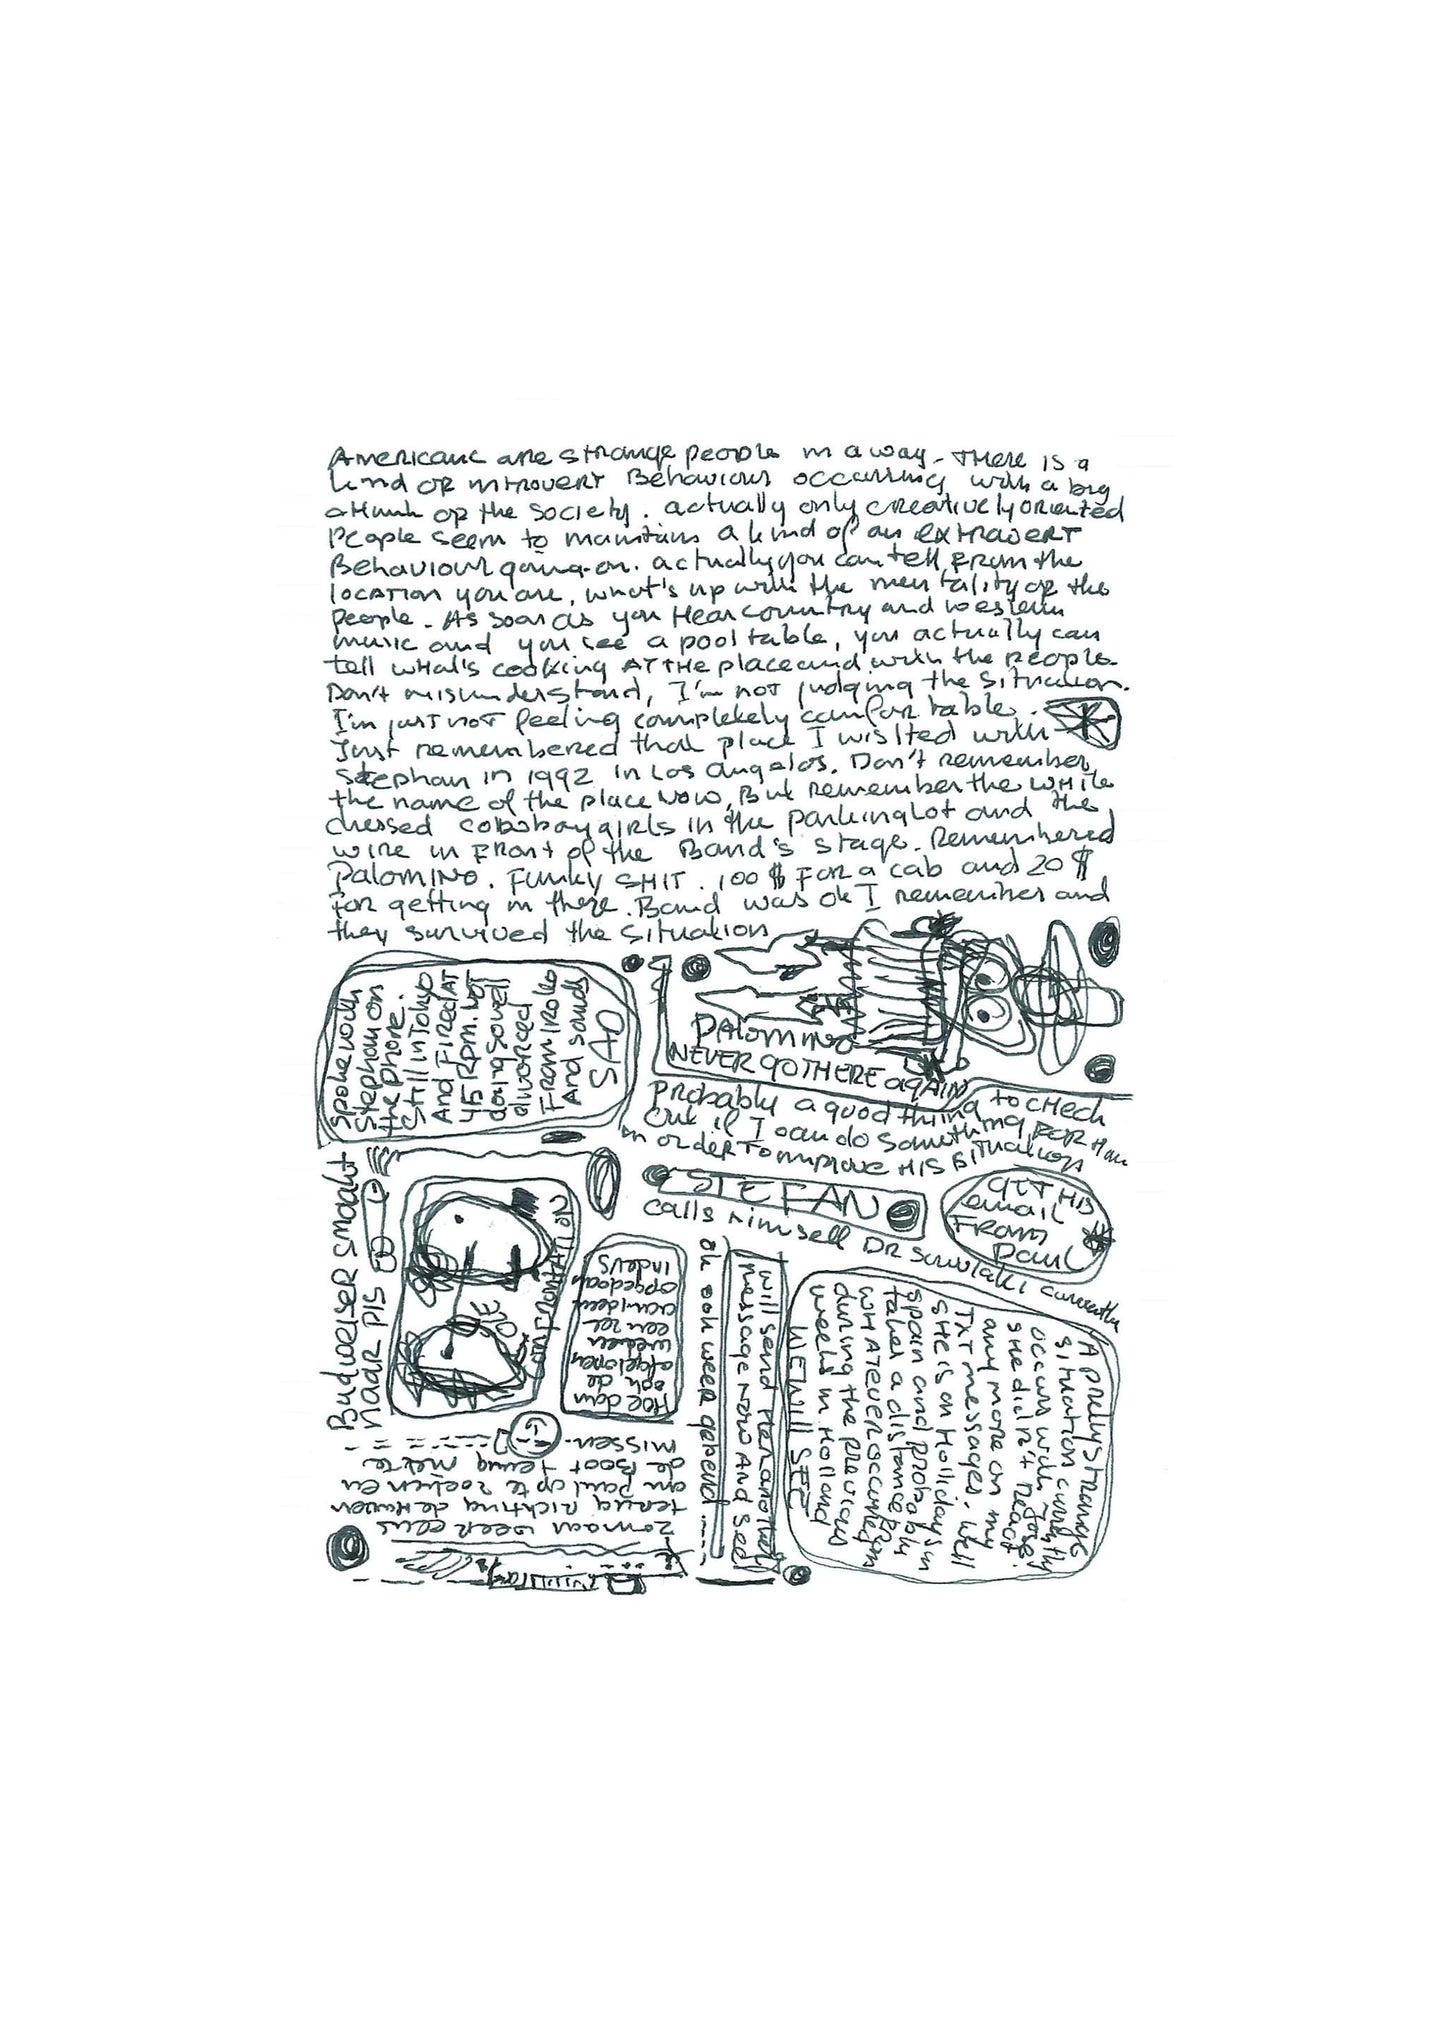 Americans are strange people in a way. There is a
kind of introvert Behaviour occurring with a big
chunk of the society. actually only creatively oriented
people seem to maintain a kind of an extravert
Behaviour going-on. actually you can tell from the
location you are, what's up with the mentality of the
people. As soon as you Hear country and western
music and you see a pool table, you actually can
tell what's cooking AT THE place and with the people.
Don't misunderstand, I'm not judging the situation.
I'm just not feeling completely comfortable.
Just remembered that place I visited with
Stephan in 1992 in Los Angelos. Don't remember
the name of the place now, But remember the white
dressed cowboygirls in the parkinglot and the
wire in front of the Band's stage. Remembered
Palomino. FUNKY SHIT. 100 $ FOR a cab and 20 $
for getting in there. Band was ok I remember and
they survived the situation
PALOMINO
NEVER GO THERE AGAIN
spoke with
Stephan on
the phone.
Still in Tokyo
And FIRED AT
45 Rpm. NOT
doing so well
divorced
FROM
And sounds
SAD
Probably a good thing to check
out if I can do something FOR Him
in order to improve HIS situation
STEFAN
calls himself DR Souvlaki currently
GET HIS
email
FROM
Paul
Budweiser smaakt
naar pis
THE
CONFRONTATION
Hoe dan
ook de
afgelopen
weken
een zee
aan ideen
opgedaan
indeus
oh ook weer gebeurd ....
will send Her another
message now And see
A pretty strange
situation currently
occurs with Jose.
she didn't react
any more on my
TXT messages. Well
SHE is on Holliday in
Spain and probably
takes a distance FROM
WHATEVER OCCURRED
during the previous
weeks in Holland
WE WILL SEE
zomaar weer eens
terug richting de Haven
om Paul op te zoeken en
de Boot terug niet te
missen.